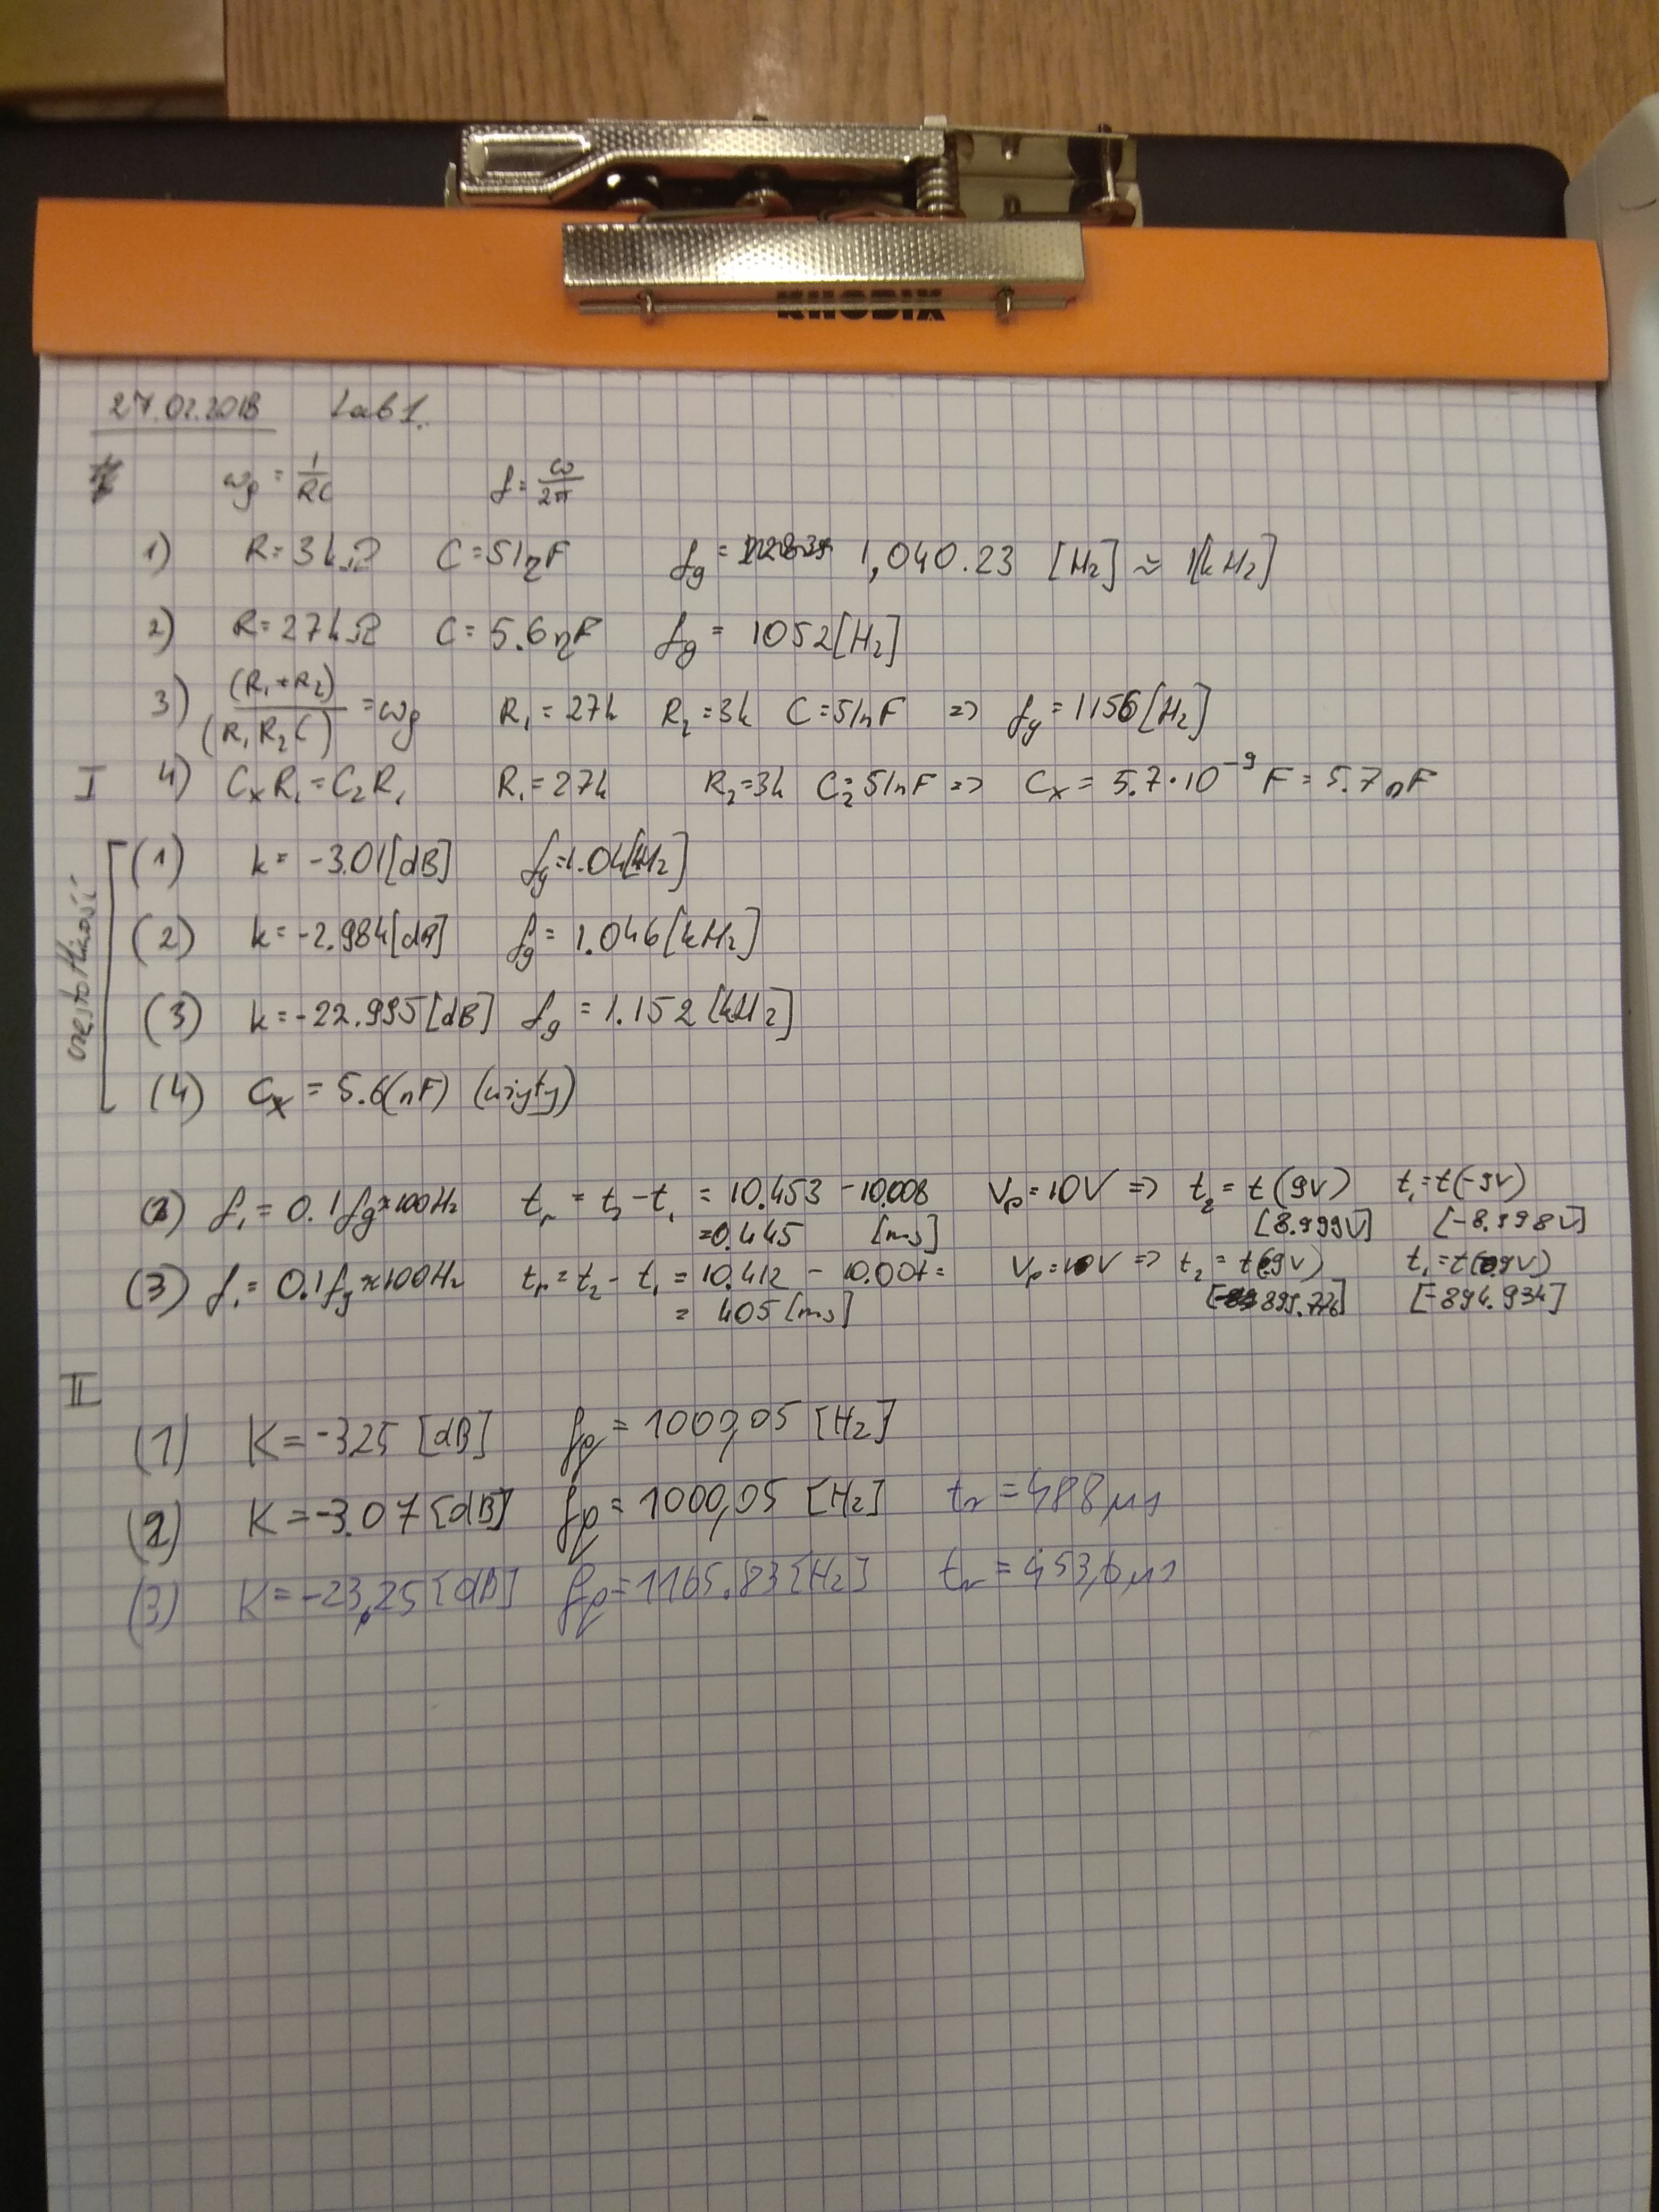 RHODIX
27.02.2018 Lab 1.
ωg = 1/RC f = ω/2π
1) R = 3kΩ C = 51nF fg = 1,040.23 [Hz] ≈ 1[kHz]
2) R = 27kΩ C = 5.6nF fg = 1052[Hz]
3) (R1+R2)/(R1R2C) = ωg R1 = 27k R2 = 3k C = 51nF => fg = 1156[Hz]
I 4) CxR1 = C2R1 R1 = 27k R2 = 3k C2 = 51nF => Cx = 5.7·10⁻⁹ F = 5.7nF
częstotliwość
(1) k = -3.01[dB] fg = 1.04[kHz]
(2) k = -2.984[dB] fg = 1.046[kHz]
(3) k = -22.995[dB] fg = 1.152[kHz]
(4) Cx = 5.6(nF) (użyty)
(2) f1 = 0.1fg≈100Hz tr = t2 - t1 = 10.453 - 10.008 Vp = 10V => t2 = t(9V) t1 = t(-9V)
=0.445 [ms] [8.999V] [-8.998V]
(3) f1 = 0.1fg≈100Hz tr = t2 - t1 = 10.412 - 10.007= Vp = 10V => t2 = t(.9V) t1 = t(0.9V)
= 405[ms] [895.776] [-894.934]
II
(1) K = -3,25 [dB] fg = 1000,05 [Hz]
(2) K = -3.07[dB] fg = 1000,05 [Hz] tr = 488μs
(3) K = -23,25[dB] fg = 1165.83[Hz] tr = 453,6μs